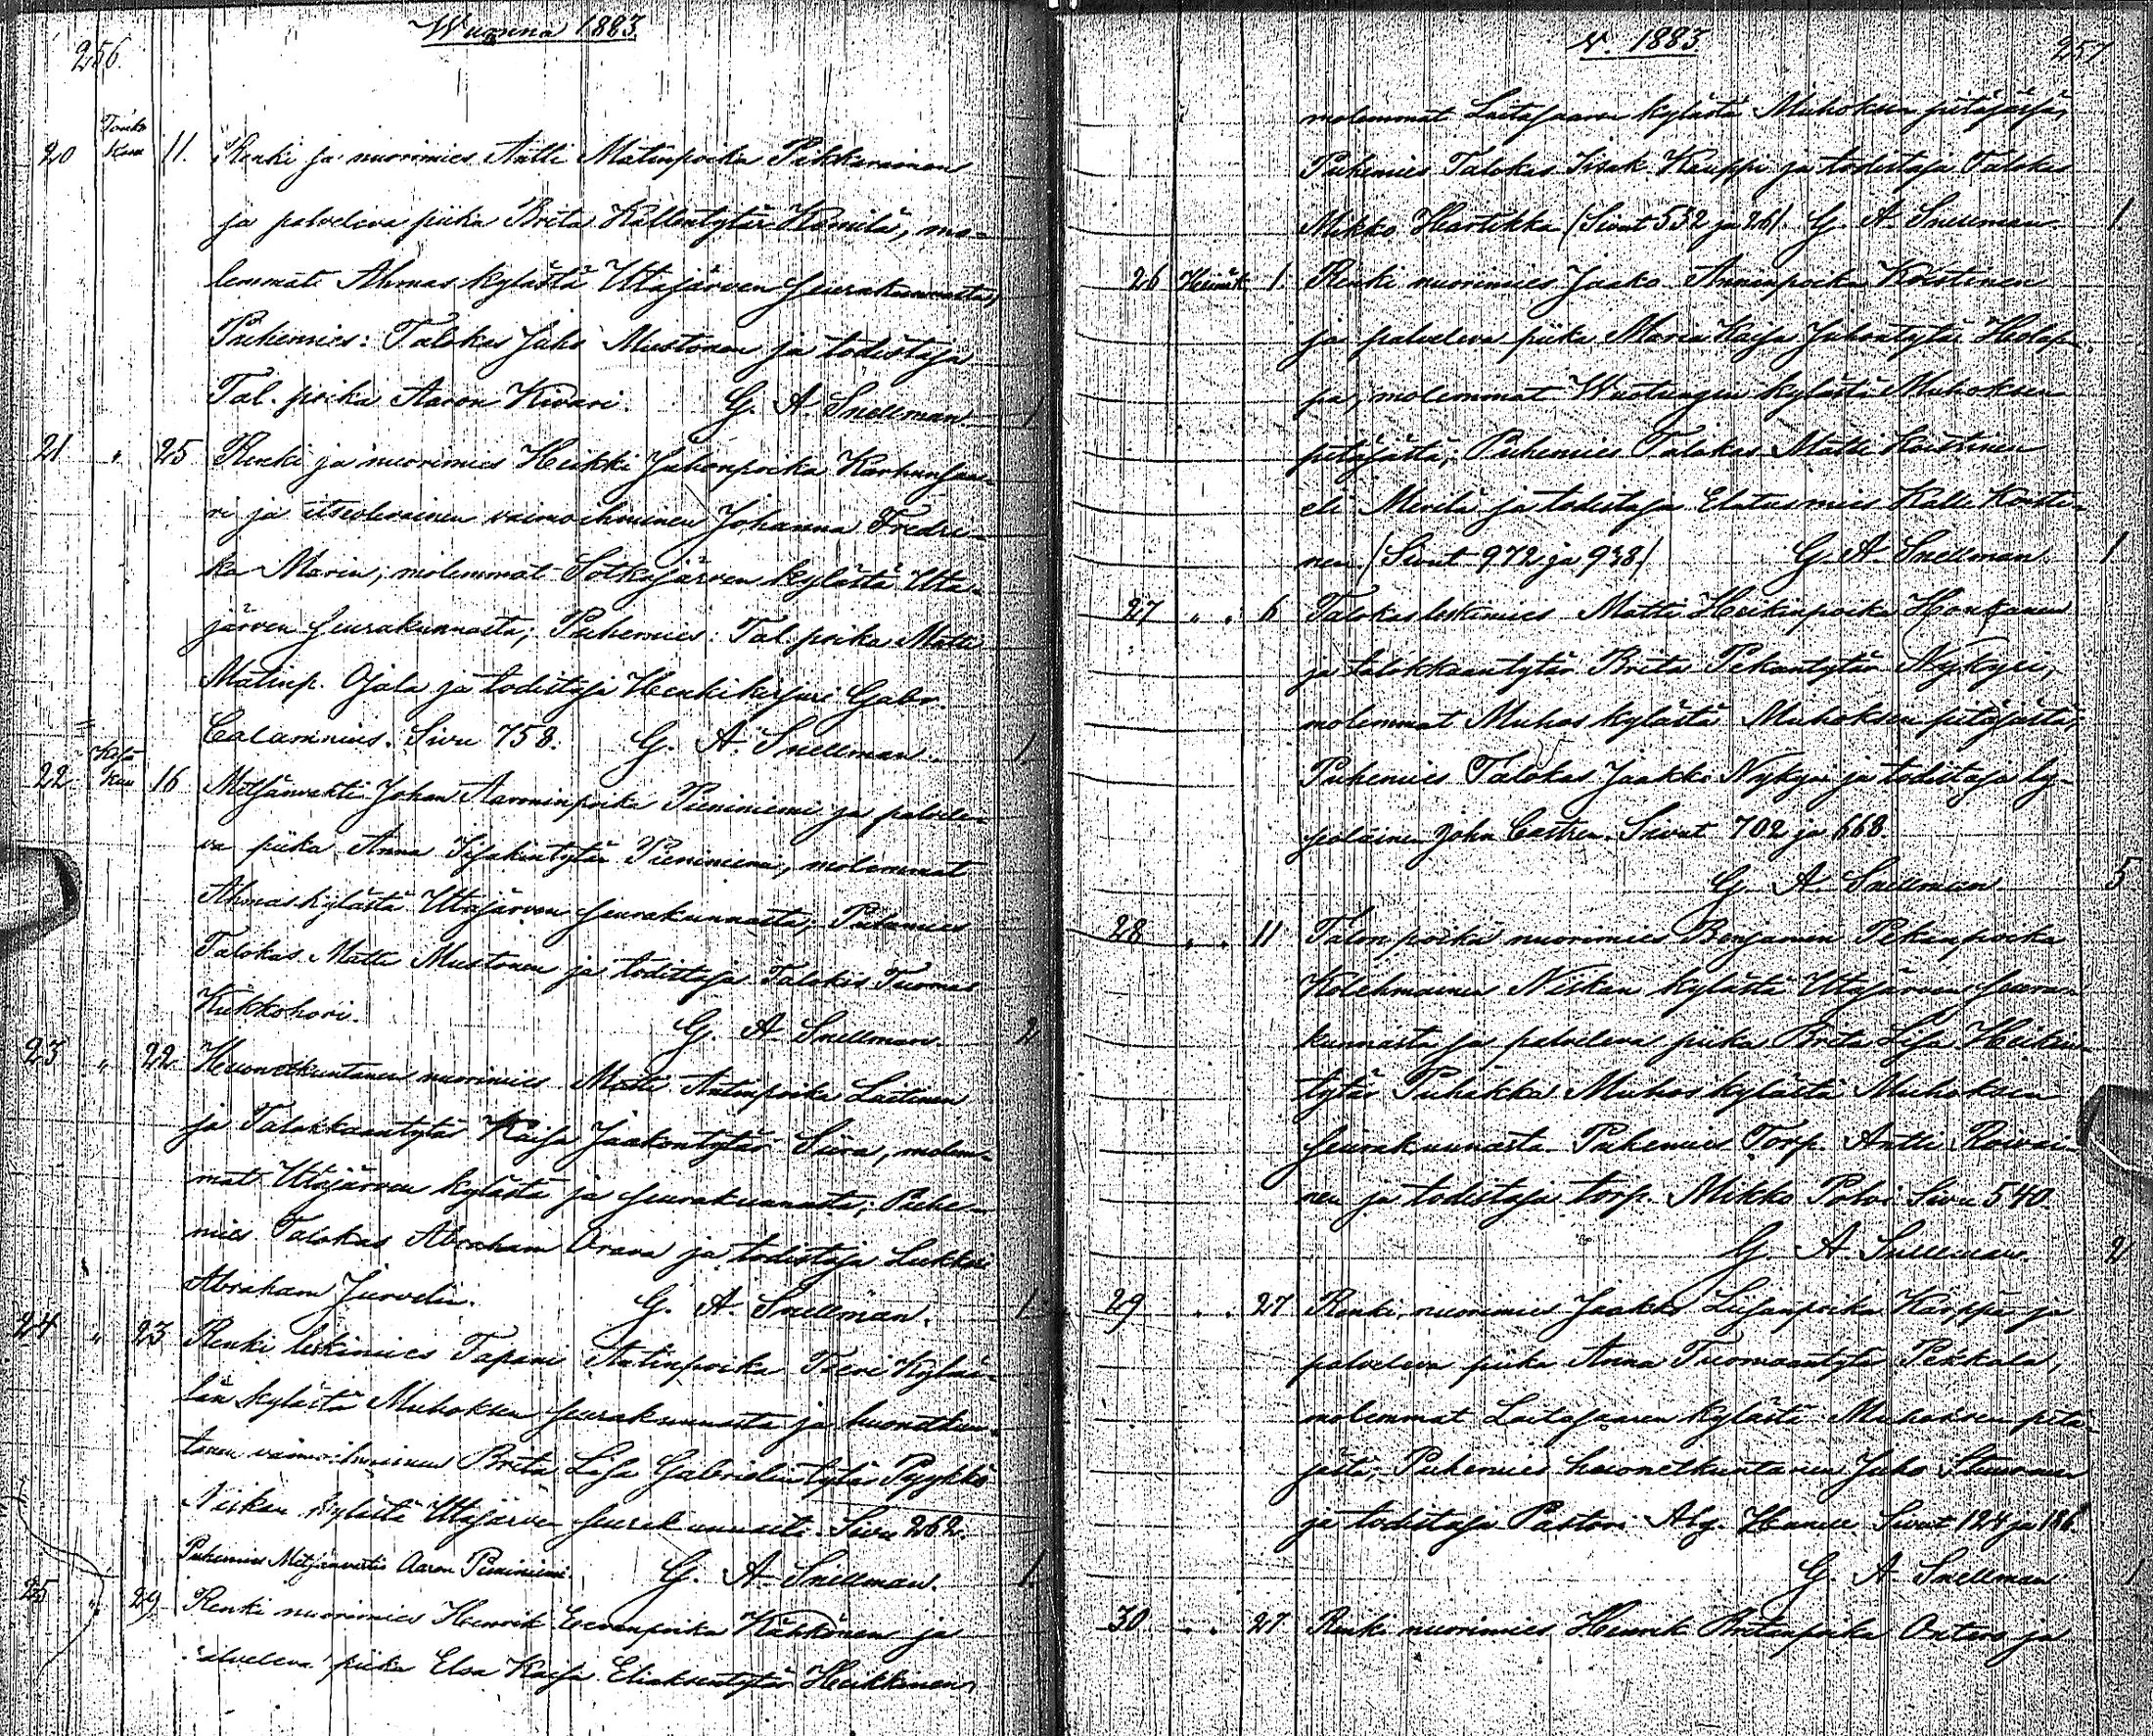 256.
Wuonna 1883.
20 Touko Kuu 11. Renki ja nuorimies Antti Matinpoika Pikkarainen
ja palveleva piika Brita Kallentytär Komula, mo-
lemmat Ahmas kylästä Utajärven seurakunnasta;
Puhemies: Talokas Juho Mustonen ja todistaja
Tal. poika Aaron Kivari. G. A. Snellman 1
21 " 25 Renki ja nuorimies Heikki Juhonpoika Karhunsaa-
ri ja itsellinen vaimoihminen Johanna Fredri-
ka Marin; molemmat Sotkajärven kylästä Uta-
järven seurakunnasta; Puhemies: Tal. poika Matti
Matinp. Ojala ja todistaja Henkikirjuri Gabr.
Calamnius. Sivu 758. G. A. Snellman. 1.
22 Kesä Kuu 16 Metsänvahti Johan Aaroninpoika Pieniniemi ja palvele-
va piika Anna Isakintytär Pieniniemi, molemmat
Ahmas kylästä Utajärven seurakunnasta; Puhemies
Talokas Matti Mustonen ja todistaja Talokas Tuomas
Kukkohovi. G. A. Snellman. 2
23 " 22. Huonetkuntanen nuorimies Matti Antinpoika Laitinen
ja Talokkaantytär Kaisa Jaakontytär Siira, molem-
mat Utajärven kylästä ja seurakunnasta; Puhe-
mies Talokas Abraham Orava ja todistaja Lukkari
Abraham Jurvelin. G. A. Snellman. 1.
24 " 23 Renki leskimies Tapani Antinpoika Teeri Kylmä-
län kylästä Muhoksen seurakunnasta ja huonetkun-
tanen vaimoihminen Brita Lisa Gabrielintytär Pyykkö
Niskan kylästä Utajärven seurakunnasta. Sivu 262.
Puhemies Metsänvahti Aaron Pieniniemi G. A. Snellman. 1.
25 " 29 Renki nuorimies Henrik Eevanpoika Kähkönen ja
palveleva piika Elsa Kaisa Eliaksentytär Heikkinen,
V. 1883.
257
molemmat Laitasaaren kylästä Muhoksen pitäjästä,
Puhemies Talokas Iisak Kauppi ja todistaja Talokas
Mikko Hartikka (Sivut 532 ja 26). G. A. Snellman 1.
26 Heinäk 1. Renki nuorimies Jaako Annanpoika Koistinen
ja palveleva piika Maria Kaisa Juhontytär Holap-
pa, molemmat Wuotungin kylästä Muhoksen
pitäjästä, Puhemies Talokas Matti Koistinen
eli Merilä ja todistaja Elatusmies Kalle Koisti-
nen (Sivut 972 ja 938) G. A. Snellman. 1
27 " " 6 Talokas leskimies Matti Heikinpoika Honkanen
ja talokkaantytär Brita Pekantytär Nykyri,
molemmat Muhos kylästä Muhoksen pitäjästä,
Puhemies Talokas Jaakko Nykyri ja todistaja ly-
seolainen John Castren. Sivut 702 ja 668
G. A. Snellman 5
28 " " 11 Talon poika nuorimies Benjamin Pekanpoika
Kolehmainen Niskan kylästä Utajärven seura-
kunnasta ja palveleva piika Brita Lisa Heikin-
tytär Puhakka Muhos kylästä Muhoksen
seurakunnasta. Puhemies Torp. Antti Roivai-
nen ja todistaja torp. Mikko Polvi. Sivu 540.
G. A. Snellman. 2
29 " " 27 Renki nuorimies Jaakko Liisanpoika Karppi ja
palveleva piika Anna Tuomaantytär Pekkala,
molemmat Laitasaaren kylästä Muhoksen pitä-
jästä, Puhemies huonetkuntanen Juho
ja todistaja Pastori Alg. Sivut 124 ja 186.
G. A. Snellman 1
30 " " 27 Renki nuorimies Henrik Britanpoika Ontero ja